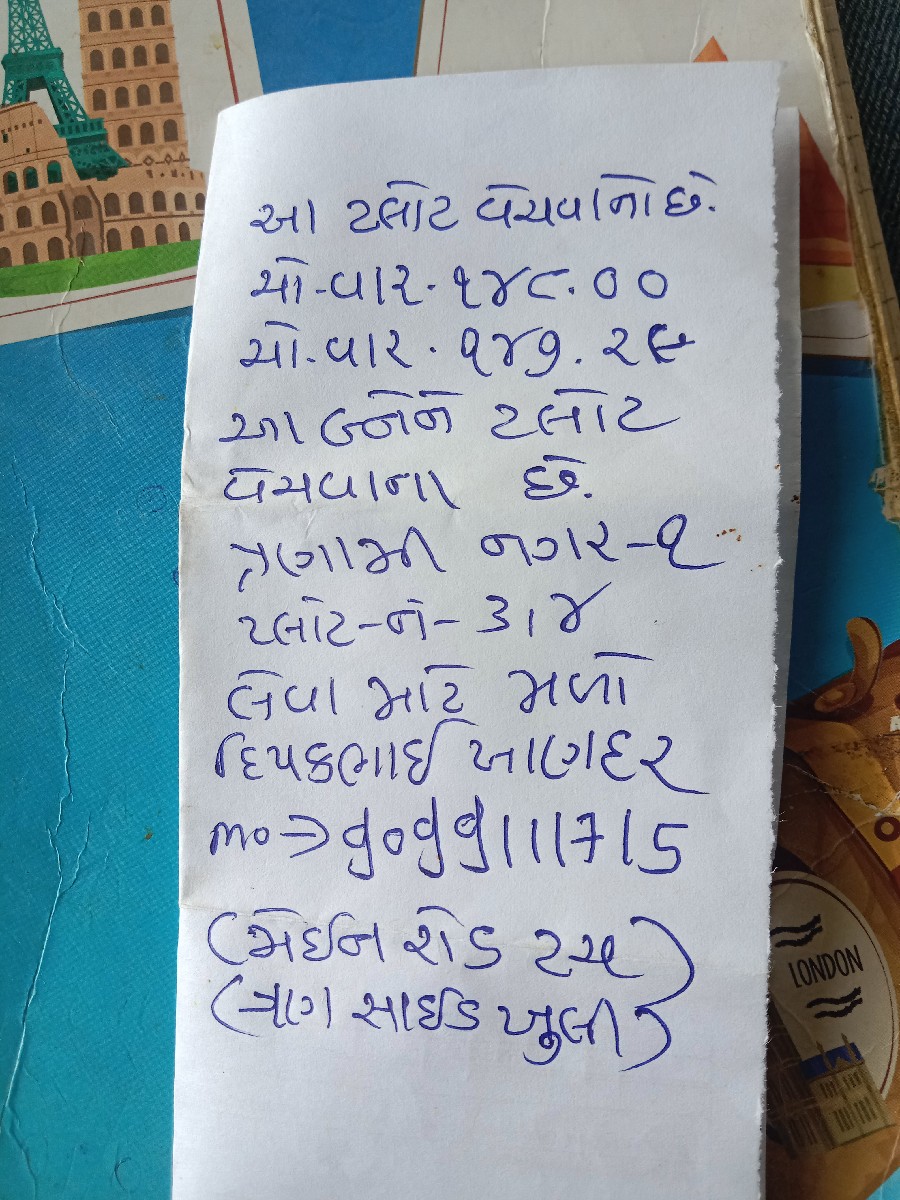 આ પ્લોટ વેચવાનો છે.
ચો-વાર. ૧૪૮.૦૦
ચો.વાર. ૧૪૭.૨૯
આ બન્ને પ્લોટ
વેચવાના છે.
નગર-૧
પ્લોટ-નં- ૩,૪
લેવા માટે મળો
દિપકભાઈ ખાણદર
mo→ 9099111715
(મેઈન રોડ ટચ)
(ત્રણ સાઈડ ખુલી)
LONDON